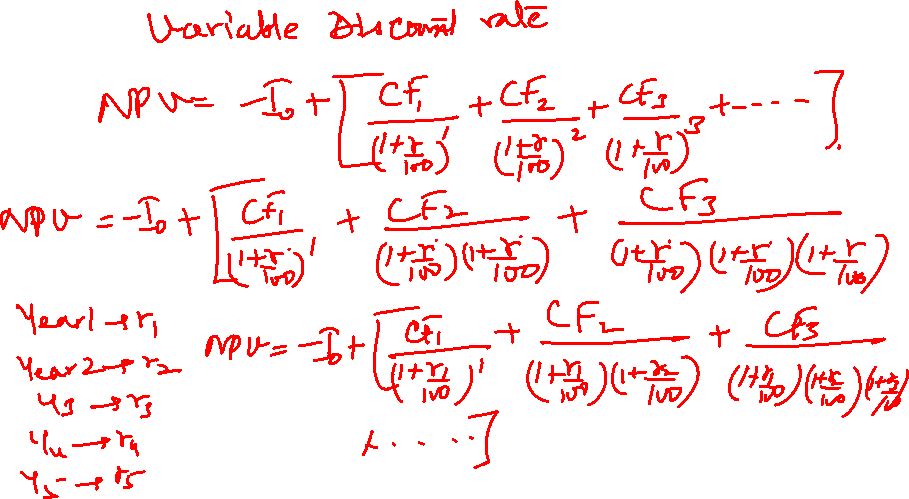 Variable Discount rate
NPV = -I₀ + [ CF₁/(1+r/100)¹ + CF₂/(1+r/100)² + CF₃/(1+r/100)³ + ---- ]
NPV = -I₀ + [ CF₁/(1+r/100)¹ + CF2/(1+r/100)(1+r/100) + CF3/(1+r/100)(1+r/100)(1+r/100)
Year1 → r₁
Year2 → r₂
Y3 → r₃
Y₄ → r₄
Y5 → r5
NPV = -I₀ + [ CF₁/(1+r₁/100)¹ + CF₂/(1+r₁/100)(1+r₂/100) + CF3/(1+r₁/100)(1+r₂/100)(1+r₃/100)
+ ..... ]